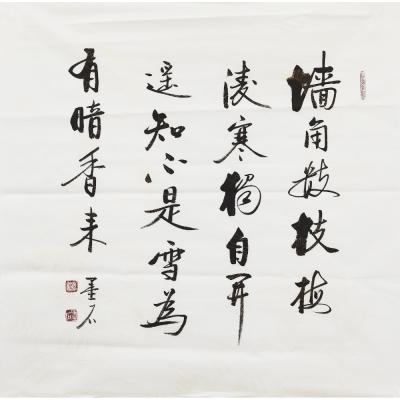 墙角数枝梅
凌寒獨自开
遥知不是雪為
有暗香来
墨石